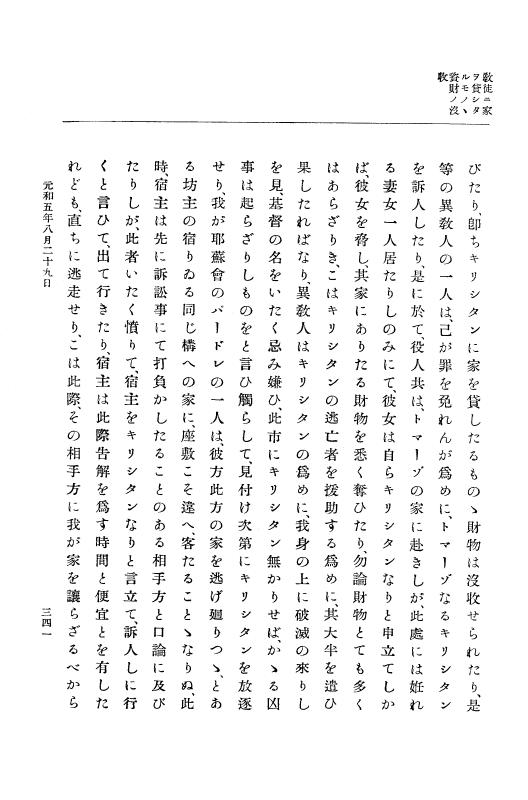 教徒ニ家
ヲ貸シタ
ルモノヽ
資財ノ沒
收
びたり、卽ちキリシタンに家を貸したるものゝ財物は沒收せられたり、是
等の異敎人の一人は、己が罪を免れんが爲めに、トマーゾなるキリシタン
を訴人したり、是に於て、役人共は、トマーゾの家に赴きしが、此處には姙れ
る妻女一人居たりしのみにて、彼女は自らキリシタンなりと申立てしか
ば、彼女を脅し、其家にありたる財物を悉く奪ひたり、勿論財物とても多く
はあらざりき、こはキリシタンの逃亡者を援助する爲めに、其大半を遣ひ
果したればなり、異敎人はキリシタンの爲めに、我身の上に破滅の來りし
を見、基督の名をいたく忌み嫌ひ、此市にキリシタン無かりせば、かゝる凶
事は起らざりしものをと言ひ觸らして、見付け次第にキリシタンを放逐
せり、我が耶蘇會のパードレの一人は、彼方此方の家を逃げ廻りつゝ、とあ
る坊主の宿りゐる同じ構への家に、座敷こそ違へ、客たることゝなりぬ、此
時、宿主は先に訴訟事にて打負かしたることのある相手方と口論に及び
たりしが、此者いたく憤りて、宿主をキリシタンなりと言立て、訴人しに行
くと言ひて、出て行きたり、宿主は此際告解を爲す時間と便宜とを有した
れども、直ちに逃走せり、こは此際、その相手方に我が家を讓らざるべから
元和五年八月二十九日
三四一